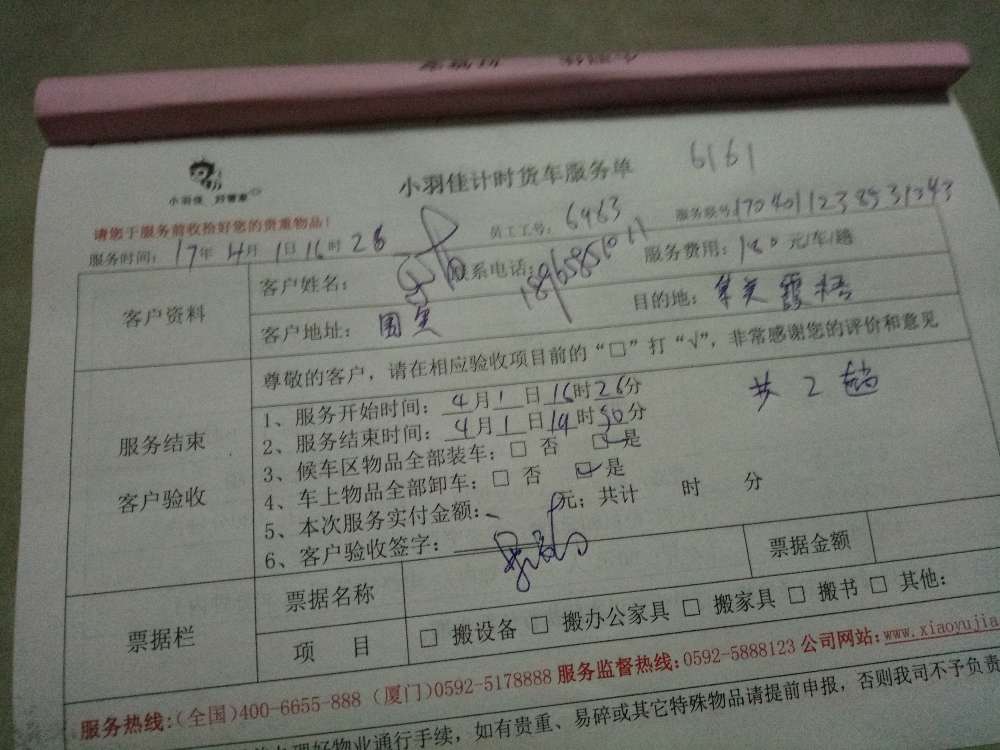 小羽佳 好管家
小羽佳计时货车服务单 6161
请您于服务前收拾好您的贵重物品!
服务时间: 17年 4月 1日 16时 26 员工工号: 6463 服务账号:
客户资料
客户姓名: 联系电话: 服务费用: 180 元/车/趟
客户地址: 目的地: 集美
尊敬的客户,请在相应验收项目前的“□”打“√”,非常感谢您的评价和意见
服务结束
客户验收
1、服务开始时间: 4月 1 日 16时 26分 共 2 趟
2、服务结束时间: 4月 1 日 19时 30分
3、候车区物品全部装车: □ 否 □ 是
4、车上物品全部卸车: □ 否 □ 是
5、本次服务实付金额: 元; 共计 时 分
6、客户验收签字:
票据栏
票据名称 票据金额
项 目 □ 搬设备 □ 搬办公家具 □ 搬家具 □ 搬书 □ 其他:
服务热线:(全国)400-6655-888 (厦门)0592-5178888 服务监督热线:0592-5888123 公司网站:www.xiaoyujia
理好物业通行手续,如有贵重、易碎或其它特殊物品请提前申报,否则我司不予负责